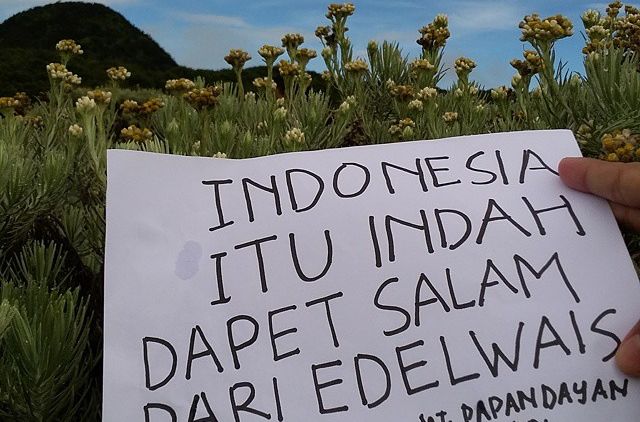 INDONESIA
ITU INDAH
DAPET SALAM
DARI EDELWAIS
MT. PAPANDAYAN